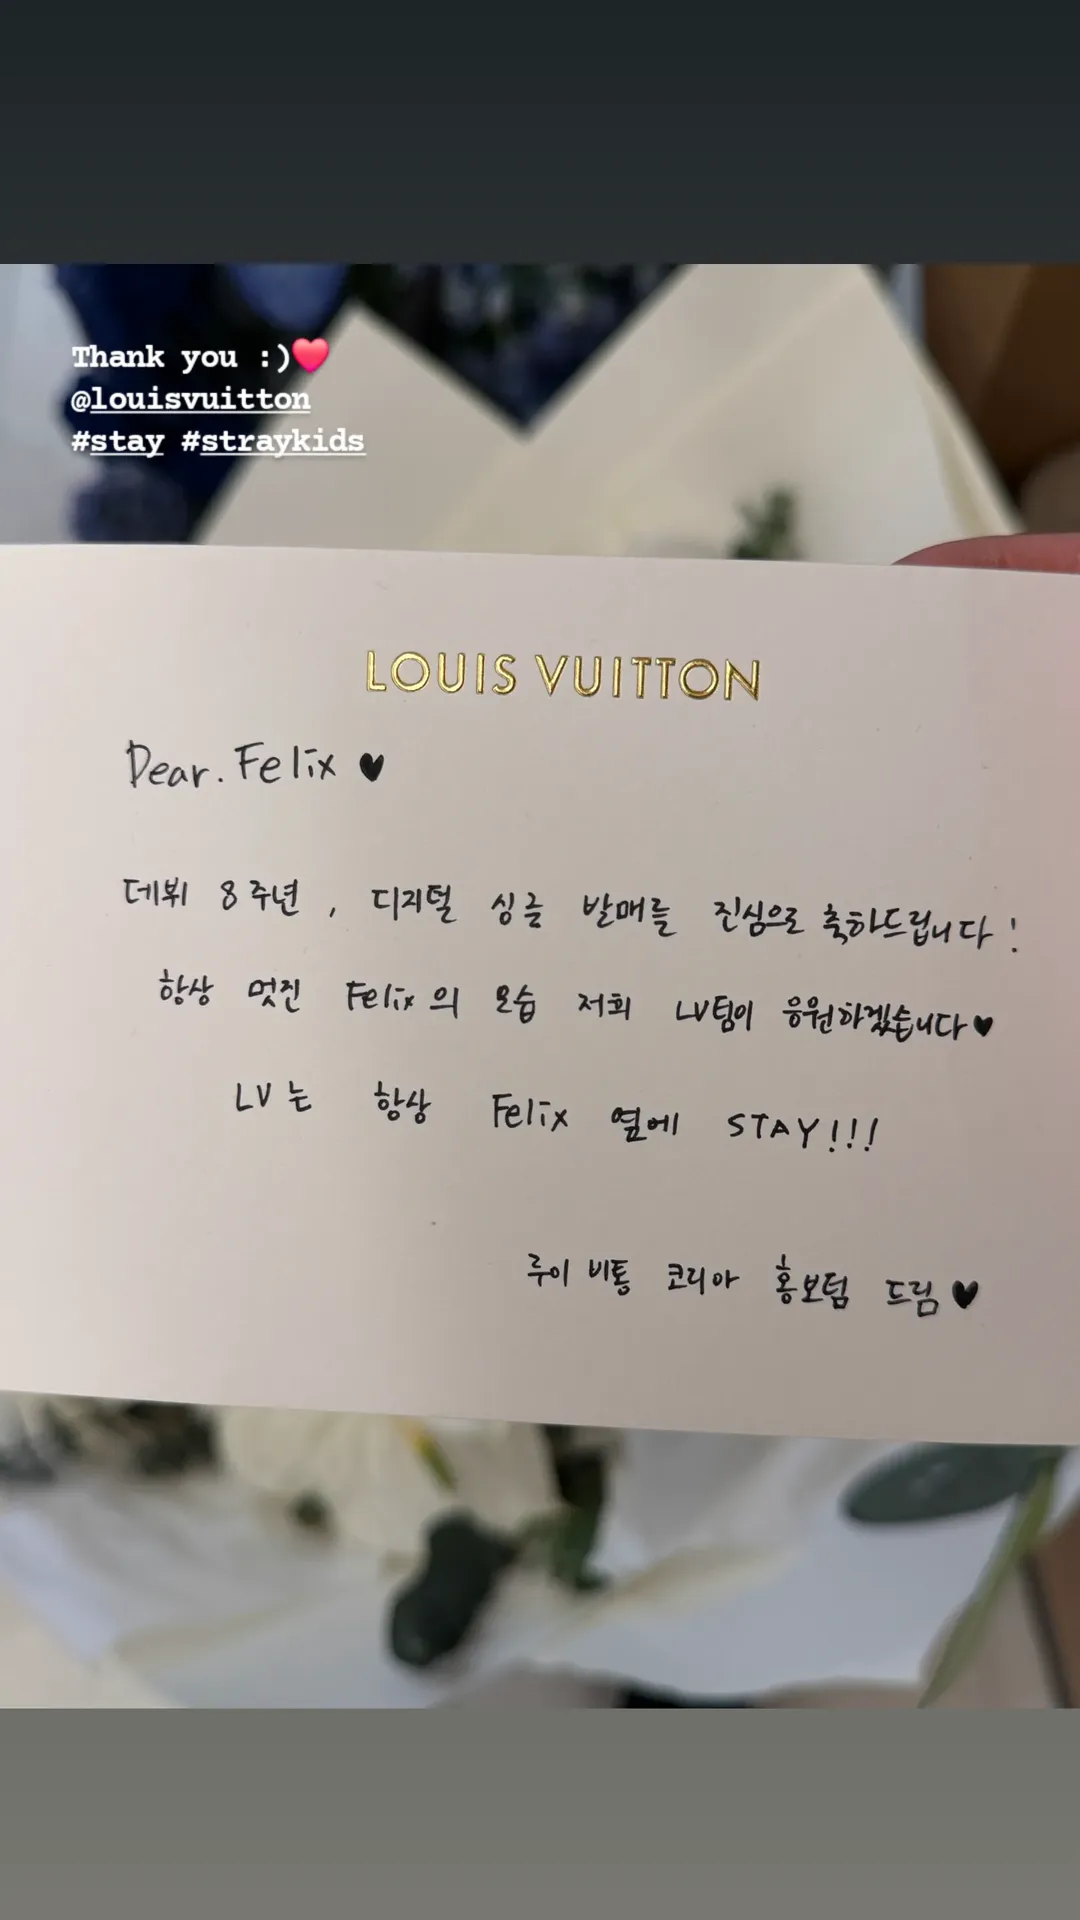 Thank you :)❤️
@louisvuitton
#stay #straykids
LOUIS VUITTON
Dear. Felix ♥
데뷔 8주년, 디지털 싱글 발매를 진심으로 축하드립니다!
항상 멋진 Felix의 모습 저희 LV팀이 응원하겠습니다♥
LV는 항상 Felix 옆에 STAY!!!
루이 비통 코리아 홍보팀 드림♥